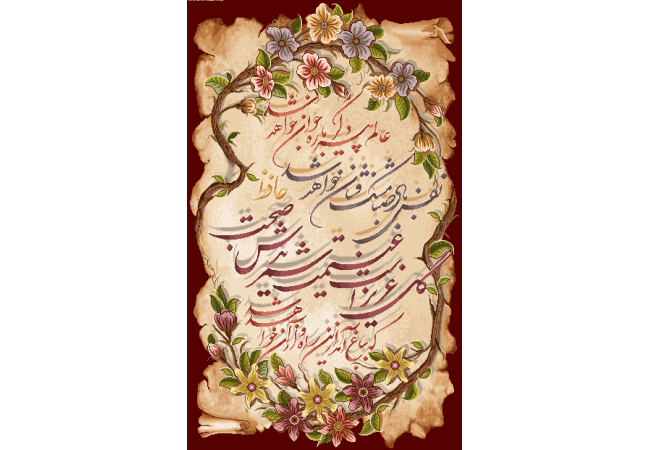 نفس باد صبا مشک فشان خواهد شد
عالم پیر دگر باره جوان خواهد شد
حافظ
گل عزیز است غنیمت شمریدش صحبت
که بباغ آمد ازین راه و از آن خواهد شد